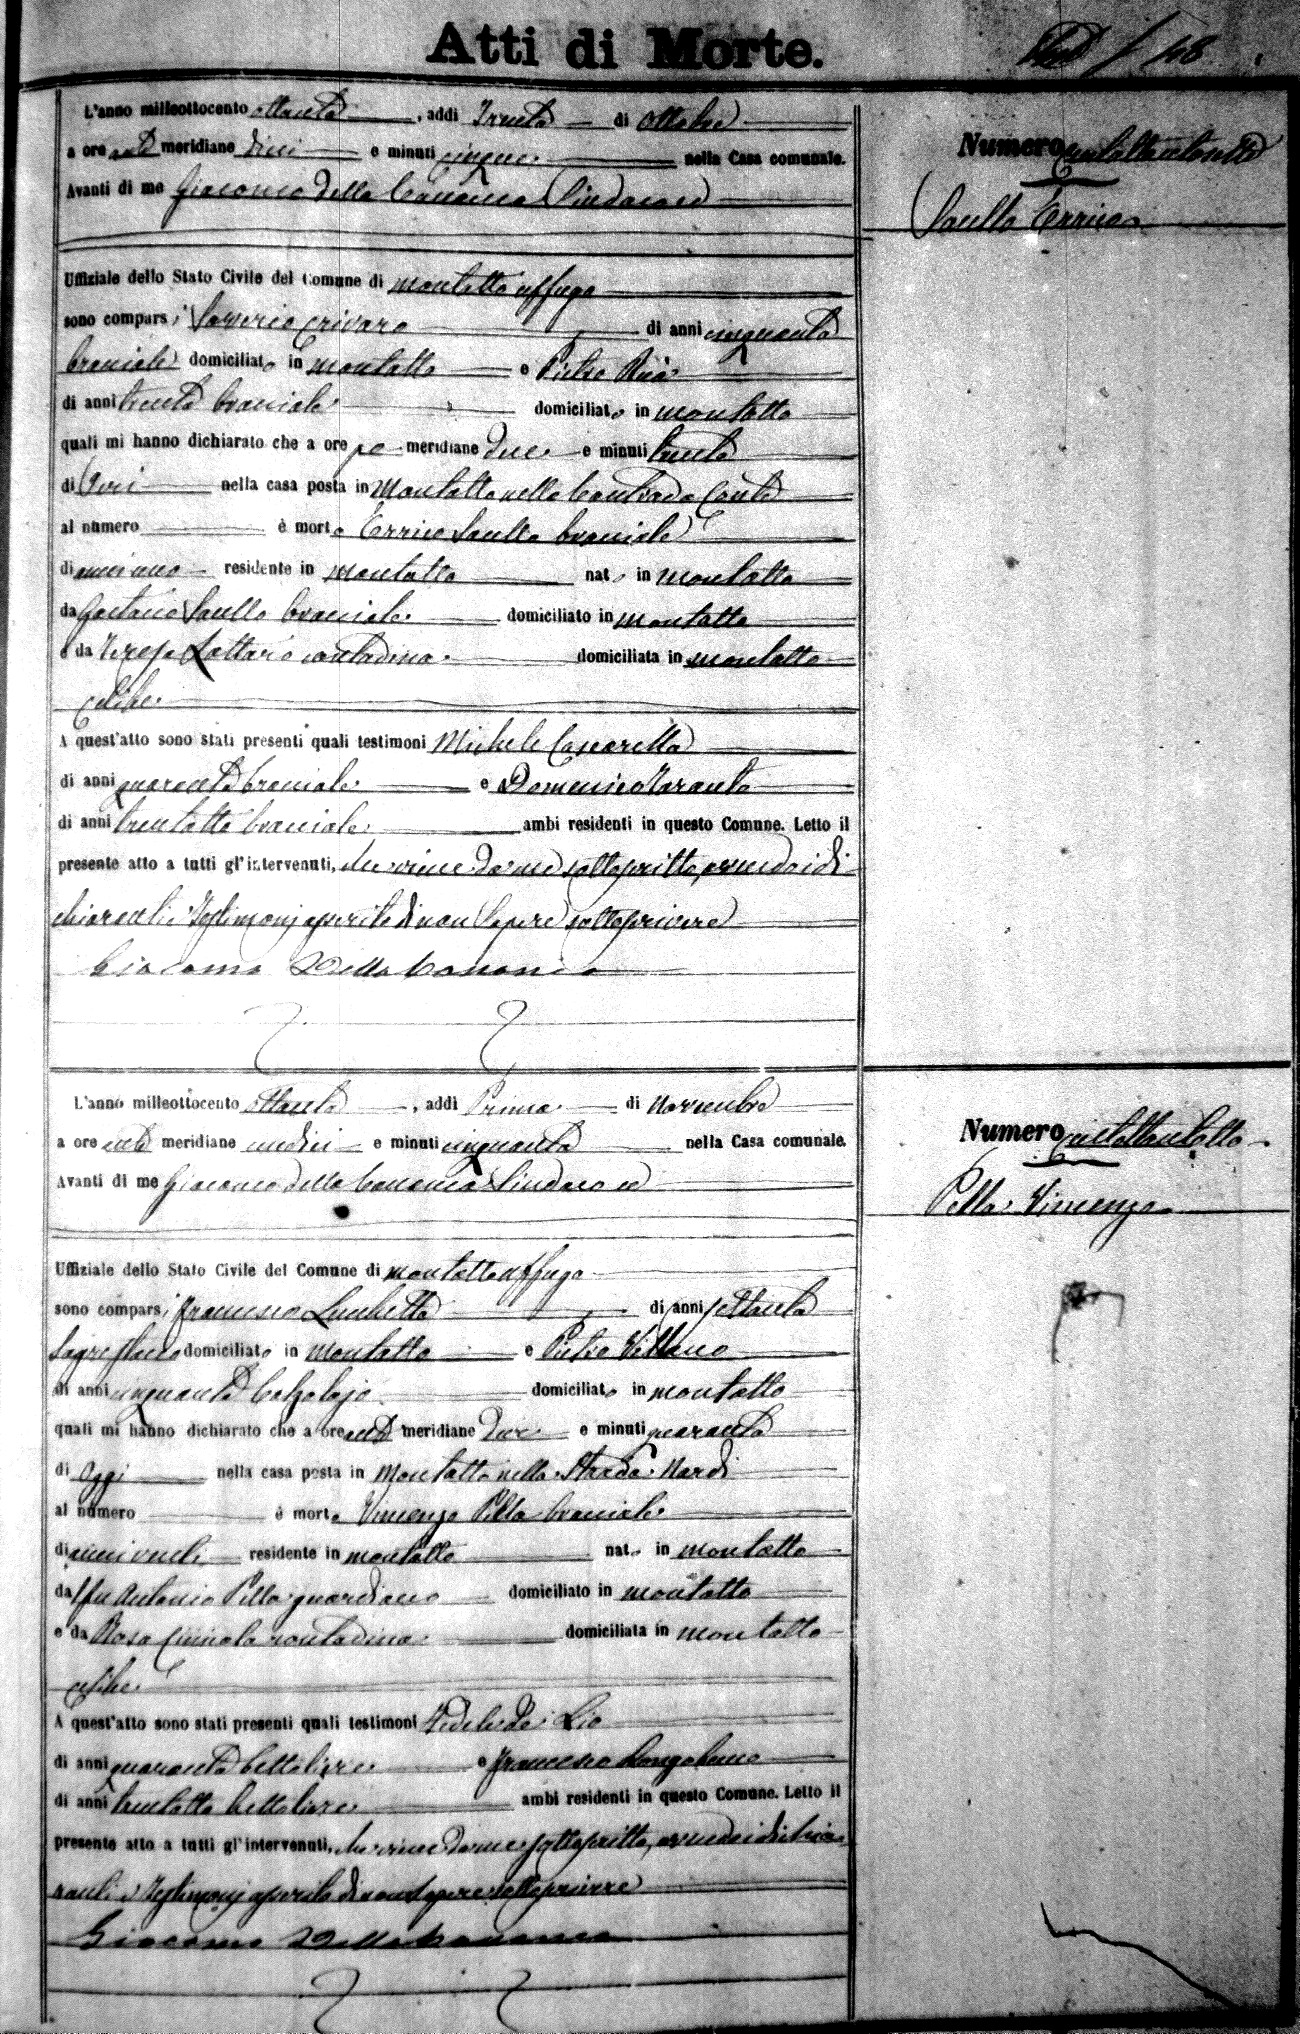 Atti di Morte.
48
L'anno milleottocento ottanta, addì Trenta di Ottobre
a ore anti meridiane dieci e minuti cinque nella Casa comunale.
Avanti di me Giacomo della Cananea Sindaco ed
Uffiziale dello Stato Civile del Comune di Montalto Uffugo
sono comparsi Saverio Crivaro di anni cinquanta
bracciale domiciliato in Montalto e Pietro Ruà
di anni trenta bracciale domiciliato in Montalto
quali mi hanno dichiarato che a ore po meridiane due e minuti trenta
di Jeri nella casa posta in Montalto nella Contrada Conte
al numero è morto Errico Saullo bracciale
di anni residente in Montalto nato in Montalto
da Gaetano Saullo bracciale domiciliato in Montalto
e da Teresa Lattaro contadina domiciliata in Montalto
celibe
A quest'atto sono stati presenti quali testimoni Michele Cascarella
di anni quaranta bracciale e Domenico Taranto
di anni trentotto bracciale ambi residenti in questo Comune. Letto il
presente atto a tutti gl'intervenuti, che viene da me sottoscritto, avendo i di
chiaranti e Testimonj asserito di non sapere sottoscrivere
Giacomo Della Cananea
Numero centottantasette
Saullo Errico
L'anno milleottocento ottanta, addì Primo di Novembre
a ore anti meridiane undici e minuti cinquanta nella Casa comunale.
Avanti di me Giacomo della Cananea Sindaco ed
Uffiziale dello Stato Civile del Comune di Montalto Uffugo
sono comparsi Francesco Luchetta di anni settanta
Sagrestano domiciliato in Montalto e Pietro Villano
di anni cinquanta Calzolajo domiciliato in Montalto
quali mi hanno dichiarato che a ore anti meridiane due e minuti quaranta
di Oggi nella casa posta in Montalto nella Strada Nardi
al numero è morto Vincenzo Pella bracciale
di anni venti residente in Montalto nato in Montalto
da fu Antonio Pella guardiano domiciliato in Montalto
e da Rosa contadina domiciliata in Montalto
celibe
A quest'atto sono stati presenti quali testimoni Fedele De Lio
di anni quaranta bettoliere e Francesco Longobucco
di anni trentotto bettoliere ambi residenti in questo Comune. Letto il
presente atto a tutti gl'intervenuti, che viene da me sottoscritto, avendo i dichia
ranti e Testimonj asserito di non sapere sottoscrivere
Giacomo Della Cananea
Numero centottantotto
Pella Vincenzo